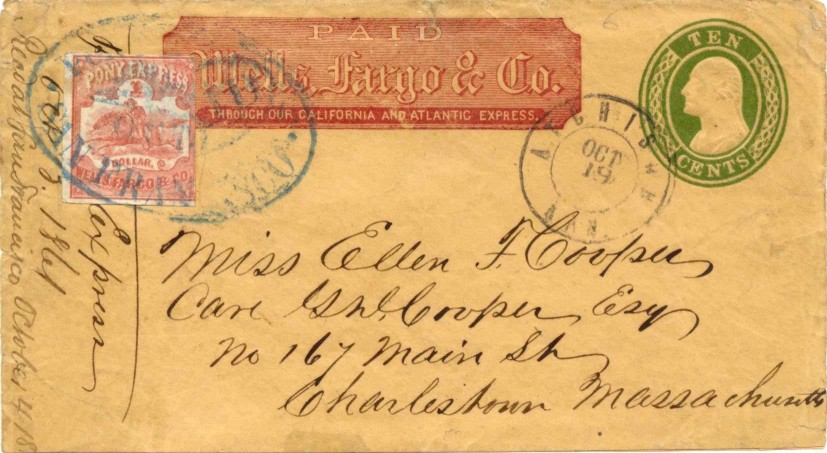 PAID
Wells, Fargo & Co.
THROUGH OUR CALIFORNIA AND ATLANTIC EXPRESS.
TEN
CENTS
PONY EXPRESS
1
DOLLAR.
WELLS, FARGO & CO
SAN FRANCISCO.
ATCHISON
KAN
OCT
19
Miss Ellen F. Cooper
Care
Cooper, Esq
No 167 Main St
Charlestown Massachusetts
Express
1861
San Francisco October 4, 18